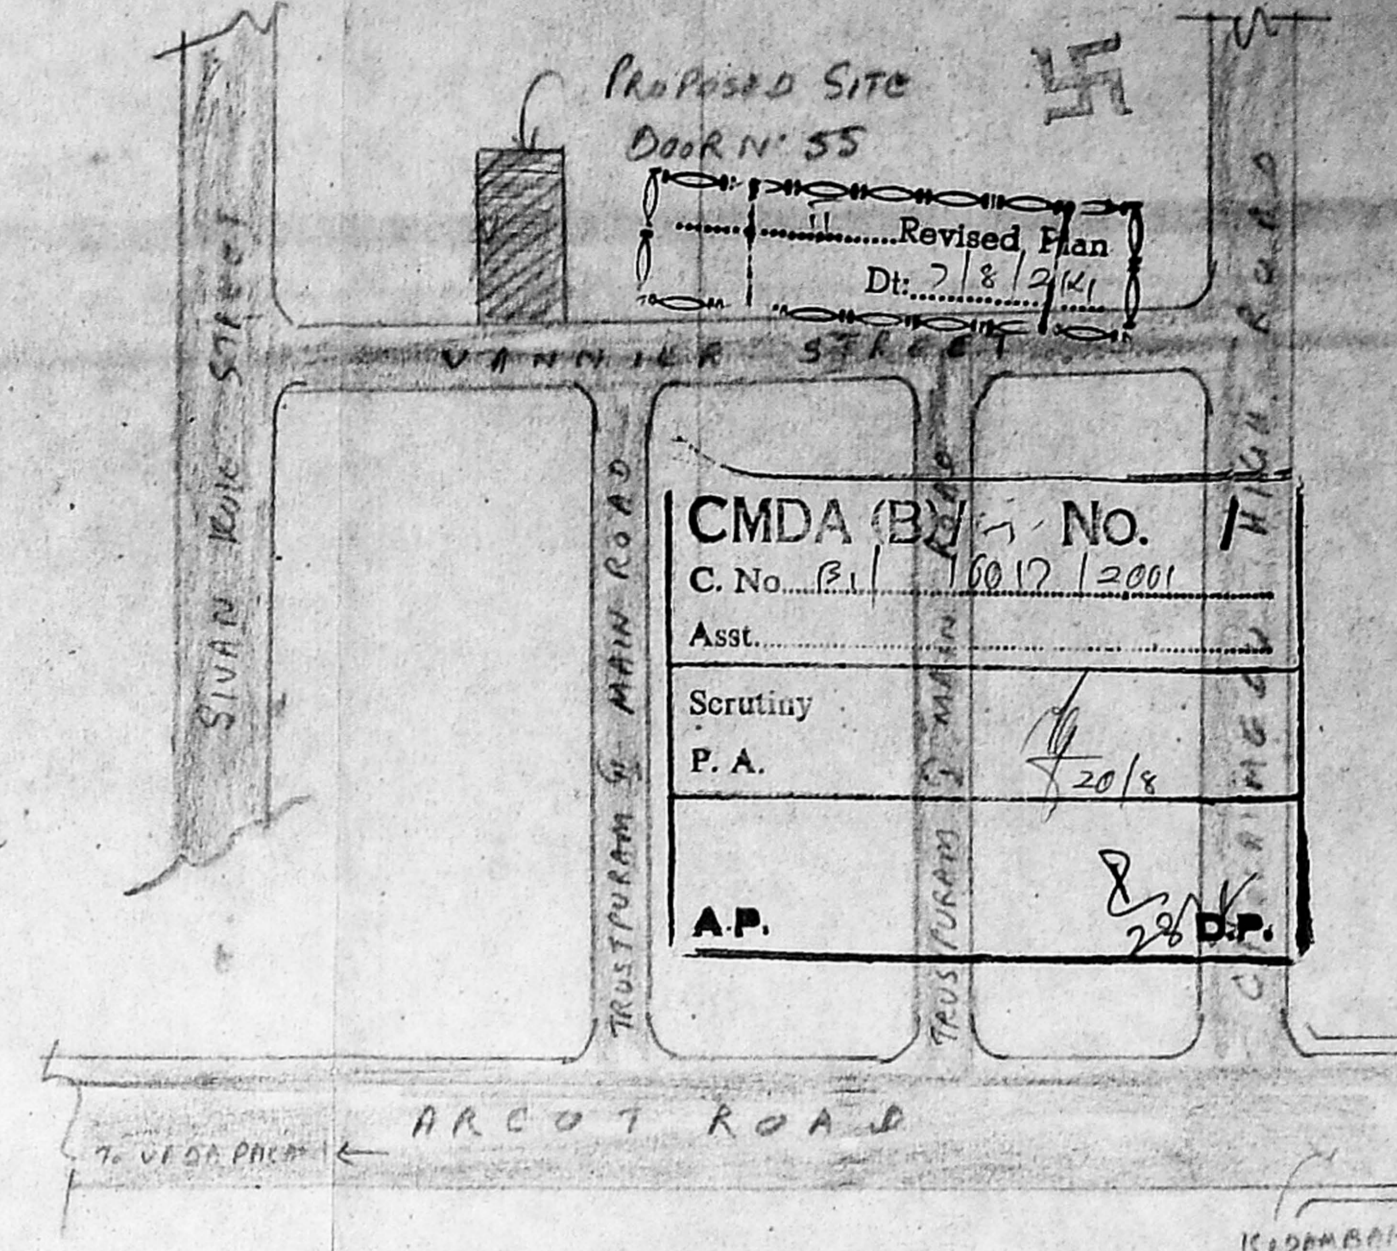 PROPOSED SITE
DOOR No 55
Revised Plan
Dt: 7/8/2K1
VANNIER STREET
SIVAN STREET
TRUSTPURAM MAIN ROAD
TRUSTPURAM MAIN ROAD
HIGH ROAD
CMDA (B)/ No.
C. No B1/ /6017/2001
Asst.
Scrutiny
P. A.
20/8
A.P.
28
D.P.
ARCOT ROAD
To VADAPALANI